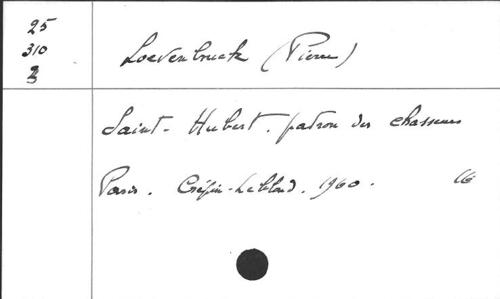 25
310
2
Loevenbruck (Pierre)
Saint-Hubert. patron des chasseurs
Paris. Crépin-Leblond. 1960. 16